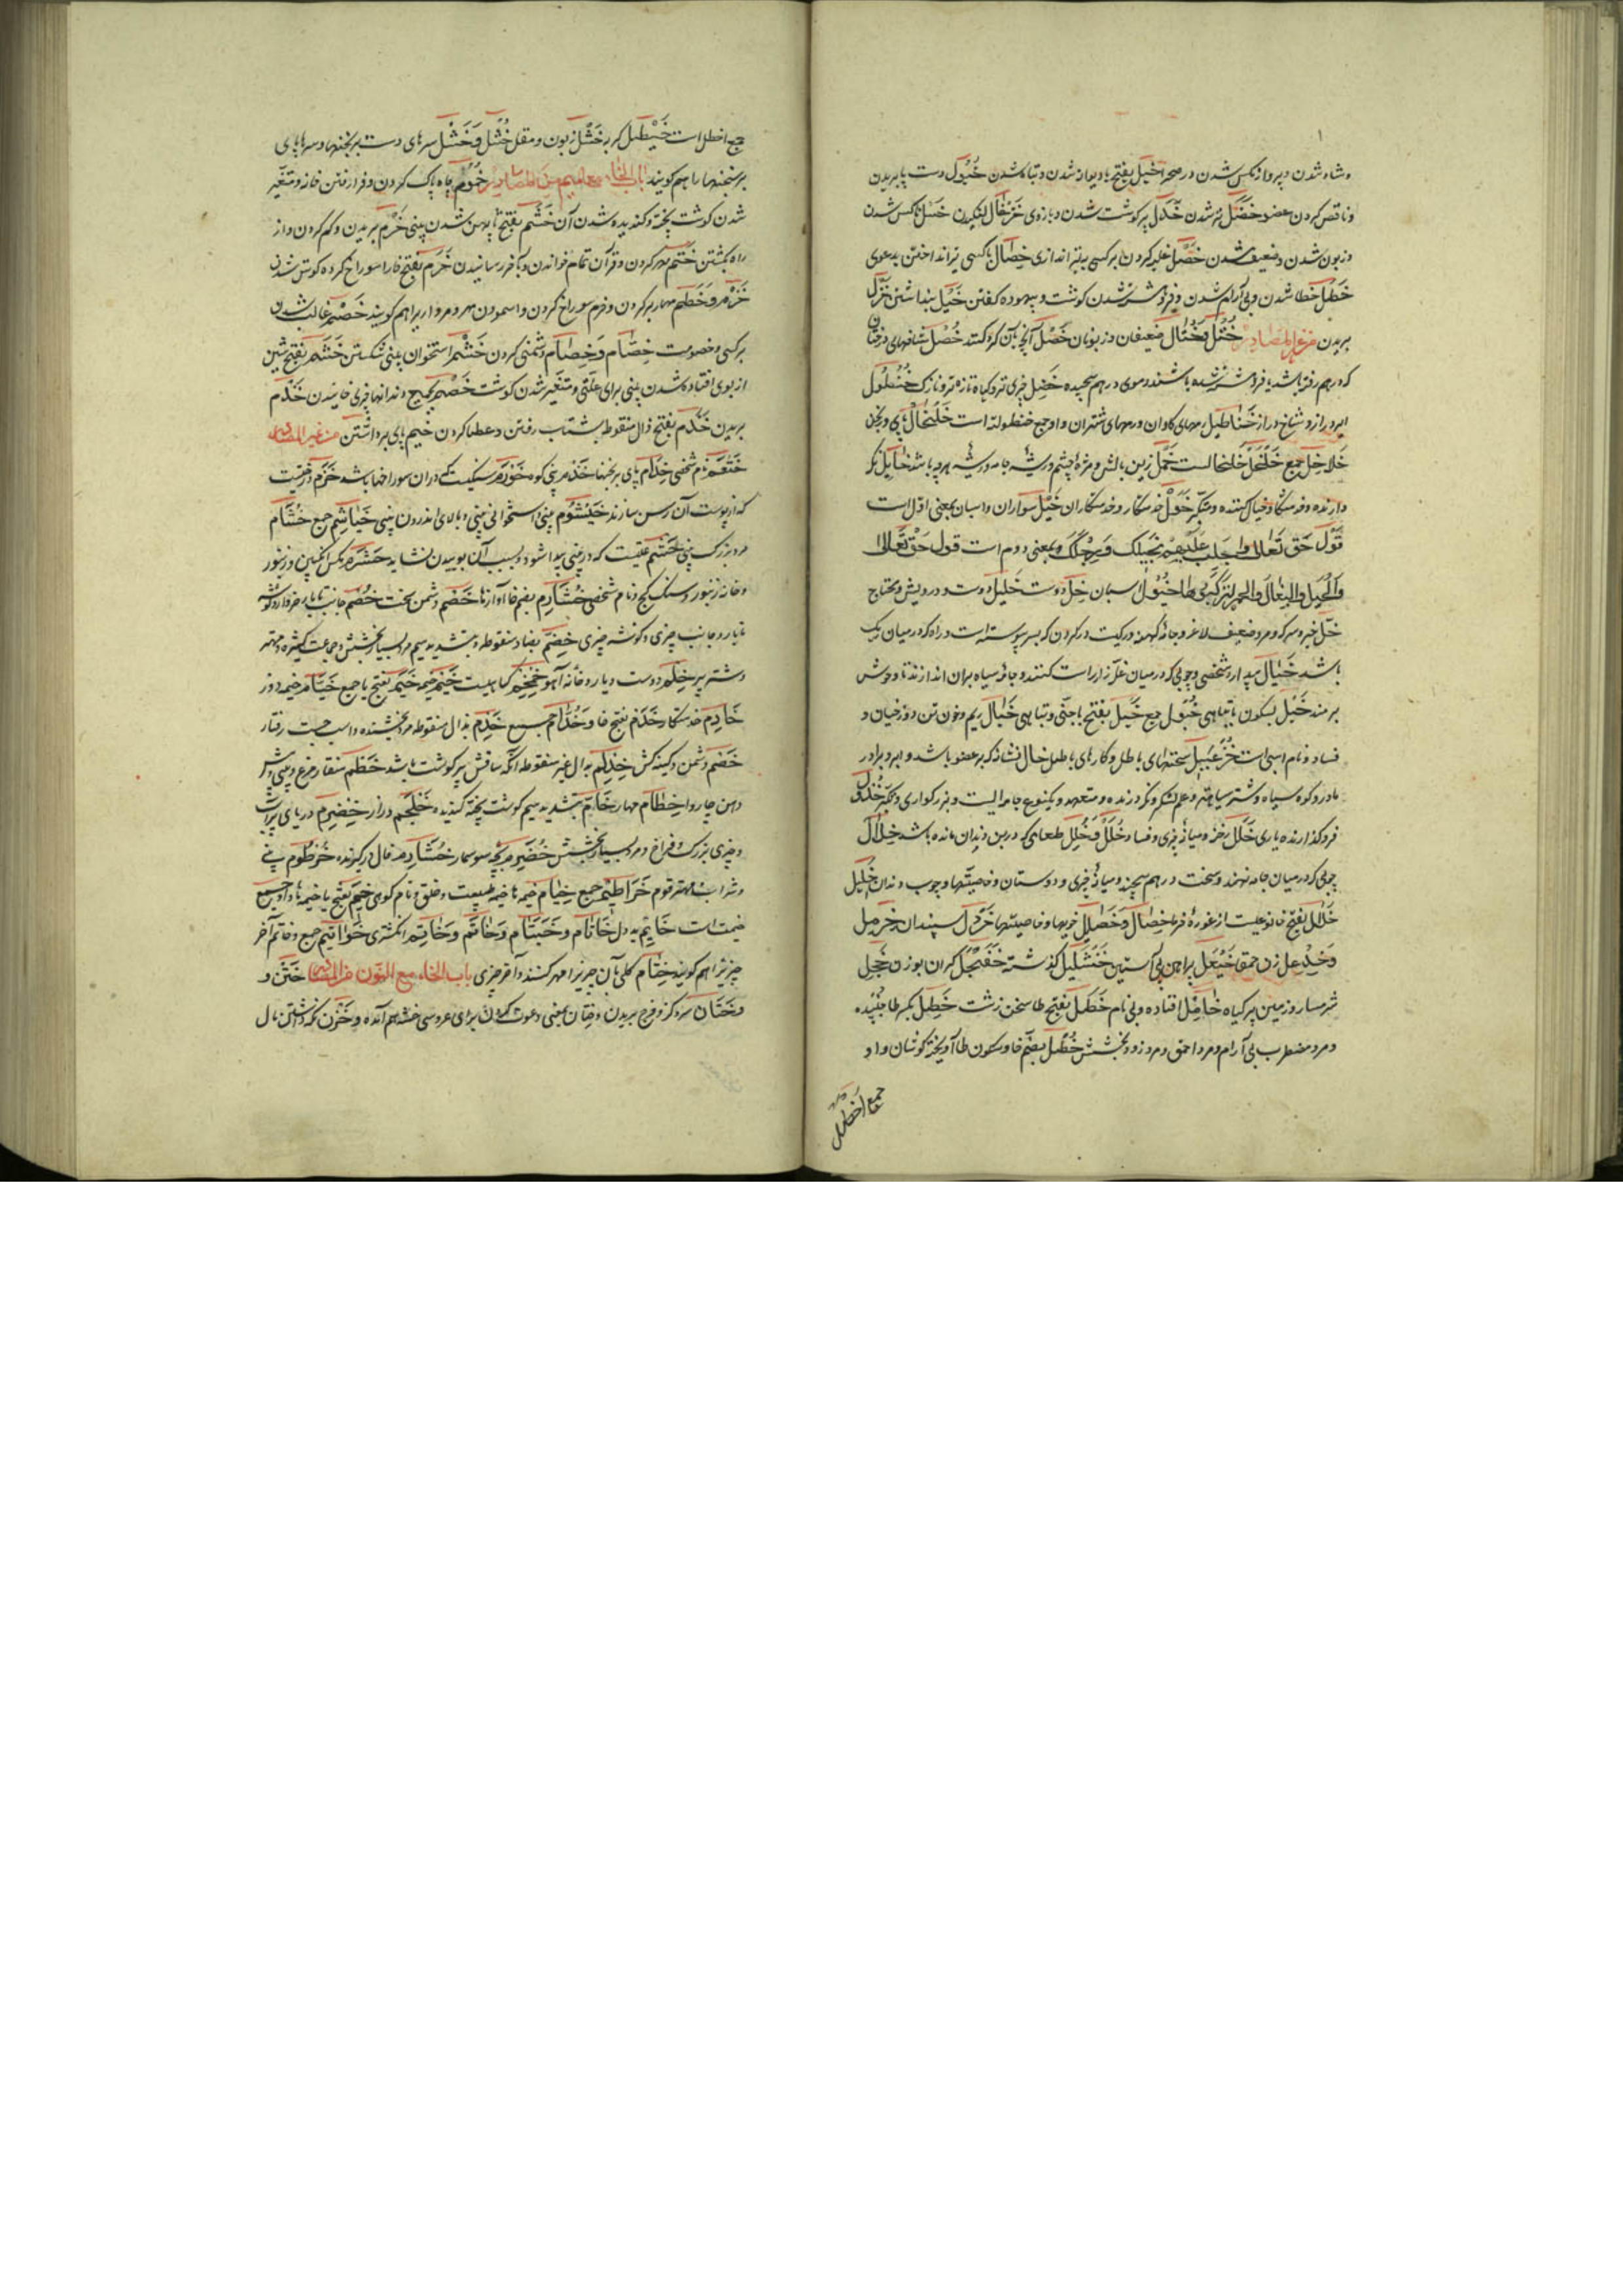 و شاد شدن و پرواز بکس شدن در صحرا خَبَل بفتح با دیوانه شدن و تباه شدن خُبُول دست پا بریدن
و ناقص کردن عضو خَضَل تر شدن خَدَل پر کوشت شدن و بازوی خَزْعال لنکیدن خَسْل ناکس شدن
و زبون شدن و ضعیف شدن خَصْل غلبه کردن بر کسی به تیر اندازی خِصال با کسی تیر انداختن بدعوی
خَطَل خطا شدن و بی آرام شدن و فروهشته شدن کوشت و بیهوده کفتن خَیْل پنداشتن خَزْل
بریدن من غیر المصادر خُتَّل و خُتّال ضعیفان و زبونان خَصْل آنچه بآن کرو کنند خُصْل شاخهای درختان
که درهم رفته باشد یا فروهشته شده باشند و موی درهم پیچیده خَضِل چیزی تر و کیاه تازه تر و نازک خُنْطُول
ابر دراز و شاخ دراز خَناطیل رمهای کاوان و رمهای شتران و او جمع خنطوله است خَلْخال پای برنجن
خَلاخِل جمع خَلْخَل خلخالست خَمْل زرین بالش و مژهٔ چشم و ریشهٔ جامه و ریشهٔ هرچه باشد خایل نکه
دارنده و خدمتکار و خیال کننده و متکبر خَوَل خدمتکار و خدمتکاران خَیْل سواران و اسبان بمعنی اول است
قول حق تعالی و اجلب علیهم بخیلک و رجلک و بمعنی دوم است قول حق تعالی
و الخیل و البغال و الحمیر لترکبوها خُیُول اسبان خِلّ دوست خَلیل دوست و درویش و محتاج
خَلّ خیر و سرکه و مرد ضعیف لاغر و جامهٔ کهنه و رکیست در کردن که بسر پیوسته است و راه که در میان ریک
باشد خَیال پندار و شخصی و چوبی که در میان غله زار راست کنند و جامهٔ سیاه بران اندازند تا وحوش
برمند خَبْل بسکون با تباهی خُبُول جمع خَبَل بفتح با جنّی و تباهی خَبال ریم و خون تن دوزخیان و
فساد و نام اسبی است خُزَعْبیل سخنهای باطل و کارهای باطل خال نشانه که بر عضو باشد و ابر و برادر
مادر و کوه سیاه و شتر سیاه و علم لشکر و نکه دارنده و متعهد و یکنوع جامه ایست و بزرکواری و تکبر خُذُل
فرو کذارنده یاری خَلَل رخنه و میانهٔ چیزی و فساد خُلَل و خِلَل طعامی که در بن دندان مانده باشد خِلال
چوبی که در میان جامه نهند و سخت درهم پیچند و میانهٔ چیزی و دوستان و خاصیتها و چوب دندان خَلیل
خَلال بفتح خا نوعیست از غورهٔ خرما خِصال و خَصایل خویها و خاصیتها خَرْدَل سپندان خِرْمِل
و خِذْعِل زن احمق خَیْعَل پیراهن بی آستین خَنْشَلیل کذشته خَفَنْجَل کران بوزن خَجِل
شرمسار و زمین پر کیاه خامِل افتاده و بی نام خَطَل بفتح طا سخن زشت خَطِل بکسر طا جنبنده
و مرد مضطرب بی آرام و مرد احمق و مرد زود بخشش خُطْل بضم خا و سکون طا آویخته کوشان و او
جمع اخطل
جمع اخطل است خَیْطَل کربه خَشْل زبون و مقل خُشْل و خَشَل سرهای دست برنجنها و سرهای پای
برنجنها را هم کویند باب الخاء مع المیم من المصادر خُموم چاه پاک کردن و فرا رفتن خانه و متغیر
شدن کوشت پخته و کندیده شدن آن خَشَم بفتح تا پهن شدن بینی خَرْم بریدن و کم کردن و از
راه کشتن خَتْم مهر کردن و قرآن تمام خواندن و بآخر رسانیدن خَرَم بفتح خا را سوراخ کرده کوش شدن
خَزْم و خَطْم مهار بر کردن و خزم سوراخ کردن و اسمودن مهره و مروارید را هم کویند خَصْم غالب شدن
بر کسی و خصومت خِصّام و خِصام دشمنی کردن خَشْم استخوان بینی شکستن خَشَم بفتح شین
از بوی افتاده شدن بینی برای علتی و متغیر شدن کوشت خَضْم بجمیع دندانها چیزی خاییدن خَذْم
بریدن خَذَم بفتح ذال منقوطه بشتاب رفتن و عطا کردن خَیْم پای برداشتن من غیر المصادر
خَثْعَم نام شخصی خِدام پای برنجنها خَذْم بینی کوه خَوْرَم سنکیست که دران سوراخها باشد خَزَم درختیست
که از پوست آن رسن سازند خَیْشوم بینی و استخوانی بینی و بالای اندرون بینی خَیاشیم جمع خُشام
مرد بزرک بینی خَشَم علتیست که در بینی پیدا شود و بسبب آن بوییدن نشاید خَشْرَم مکس انکبین و زنبور
و خانه زنبور و سنک کچ و نام شخصی خُشارِم بضم خا آوازها خَصْم دشمن سخت خُصْم جانب بار خروار و کوشه
تا بار و جانب چیزی و کوشه چیزی خِضَمّ بضاد منقوطه و تشدید میم مرد بسیار بخشش و جماعت کثیره و مهتر
و شتر پیر خِلْم دوست و یار و خانهٔ آهو خِمْخِم کیاهیست خَیْم خیمه خِیَم بفتح یا جمع خَیّام خیمه دوز
خادِم خدمتکار خَدَم بفتح خا و خُدّام جمع خَذِم بذال منقوطه مرد بخشنده و اسب چست رفتار
خَصْم دشمن و کینه کش خِدَلَّم بدال غیر منقوطه آنکه ساقش پر کوشت باشد خَطْم منقار مرغ و بینی و پیش
دهن چاروا خِطام مهار خامّ بتشدید میم کوشت پخته کندیده خَلْجَم دراز خِضْرِم دریای پر آب
و چیزی بزرک و فراخ و مرد بسیار بخشش خُضَرِم بچه سوسمار خُشارِم فال بد کیرنده خُرْطوم بینی
و شراب و مهتر قوم خَراطیم جمع خِیام خیمه ها خیم طبیعت و خلق و نام کوهی خِیَم بفتح یا خیمه ها و او جمع
خیمت است خایِم بد دل خاتام و خَیْتام و خاتَم و خاتِم انکشتری خَواتیم جمع و خاتم آخر
چیز را هم کویند خِتام کلی بآن چیز را مهر کنند و آخر چیزی باب الخاء مع النون من المصادر خَتْن و
و خِتان سر ذکر و فرج بریدن و ختان بمعنی دعوت کردن برای عروسی خشم هم آمده و خَزْن نکه داشتن مال